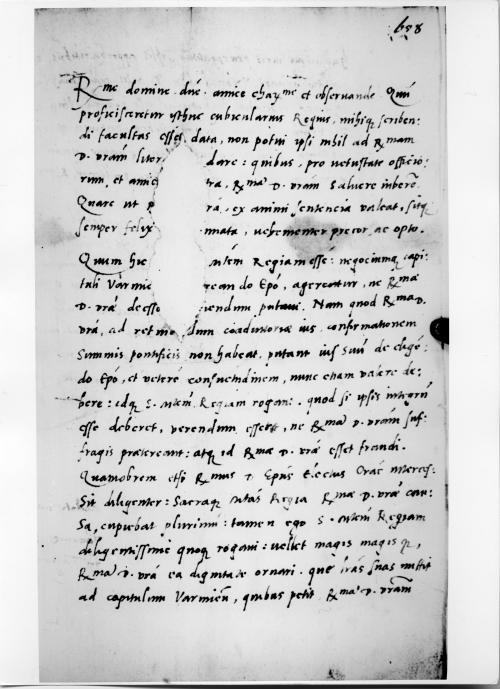 658
Rme domine dne. amice charme et observande Quū
proficisceretur isthuc cubicularius Regius, mihiq scriben-
di facultas esset data, non potui ipsi nihil ad Rmam
D. vram litter dare: quibus, pro vetustate officio-
rum, et amici tra, Rma D. vram salvere iuberē
Quare ut p rā, ex animi sentencia valeat, sitq
semper felix nnata, vehementer precor, ac opto.
Quum hic Mtem Regiam esse: negociumq capi-
tuli Varmie gean do Epō, ageretur, ne Rma
D. vrā deesse iendum putavi. Nam quod Rma D.
vra, ad retino dum coadiutoriae ius, confirmationem
Summis pontificis non habeat, putant ius suū de elige-
do Epō, et veterē consuetudinem, nunc etiam valere de-
bere: idq S. Mtem Regiam rogant. quod si ipsis integrū
esse deberet, verendum esset, ne Rma D. vram suf-
fragiis praetereant: atq id Rmae D. vrae esset fraudi.
Quamobrem etsi Rmus D. Epūs Electus Crac. interces-
sit diligenter: Sacraq Mtas Regia Rmae D. vrae cau-
sa, cupiebat plurimū: tamen ego S. Mtem Regiam
diligentissime quoq rogavi: vellet magis magisq,
Rmā D. vrā ea dignitate ornari. que lrās suas mittit
ad capitulum Varmien, quibus petit Rmā D. vram